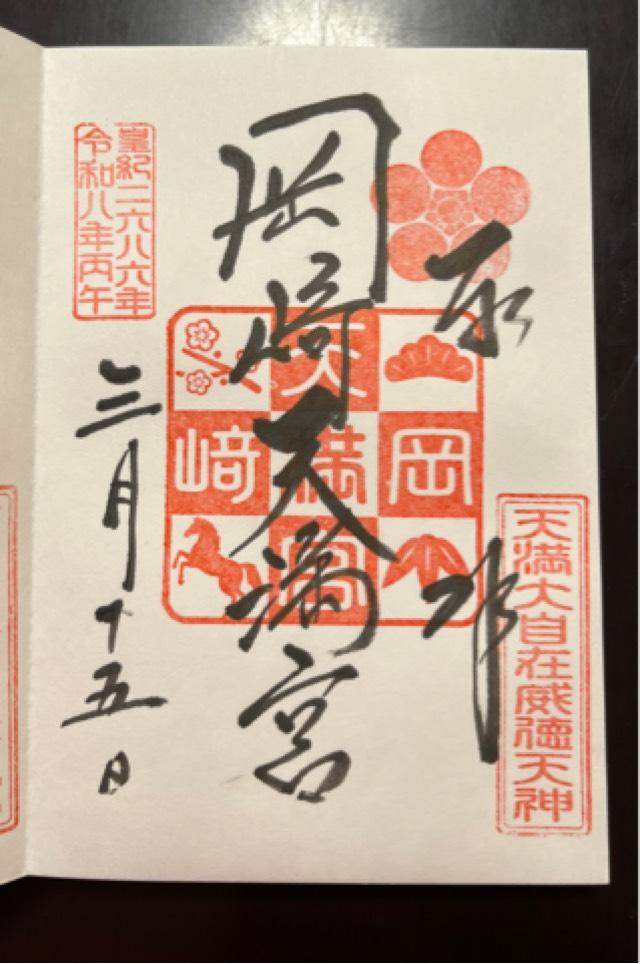 奉拝
天満大自在威徳天神
岡﨑天満宮
岡﨑
天満宮
皇紀二六八六年
令和八年丙午
三月十五日